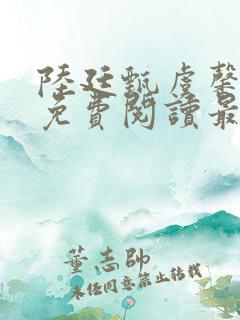 陸廷甄虞馨
免費閱讀最
董志帥
未任同意禁止转载